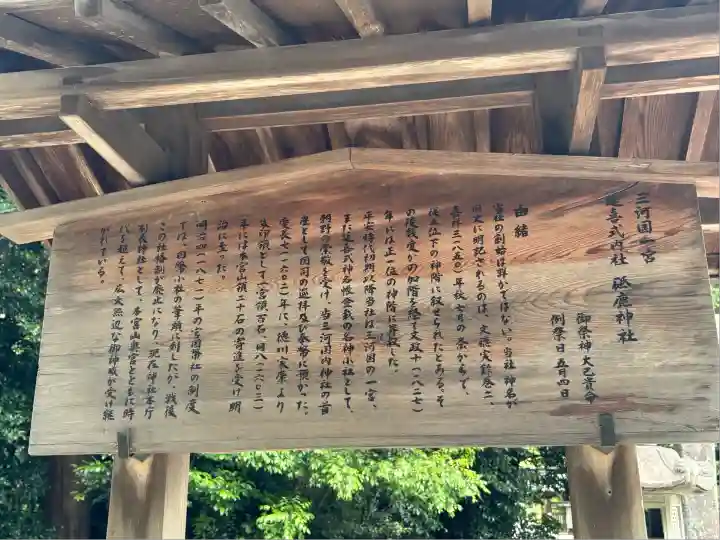 三河国一宮
延喜式内社 砥鹿神社
御祭神 大己貴命
例祭日 五月四日
由緒
当社の創始は詳かではない。当社神名が
国史に明記されるのは、文徳実録巻二、
嘉祥三(八五〇)年秋七月の条からで、
従五位下の神階に叙せられたとある。そ
の後幾度かの
年には正一位の神階に昇叙した。
平安時代初期以降当社は三河国の一宮、
また延喜式神名帳登載の名神小社として、
朝野の崇敬を受け、当三河国内神社の首
座として国司の巡拝及び奉幣に預かった。
慶長七(一六〇二)年に、徳川家康より
朱印領として一宮領百石、同八(一六〇三)
年には本宮山領二十石の寄進を受け明
治に至った。
明治四(一八七一)年の官国幣社の制度
では、国幣小社の筆頭に列したが、戦後
この社格制が廃止になり、現在神社本庁
別表神社として、本宮山奥宮とともに時
代を超えて、広大無辺な御神威が受け継
がれている。